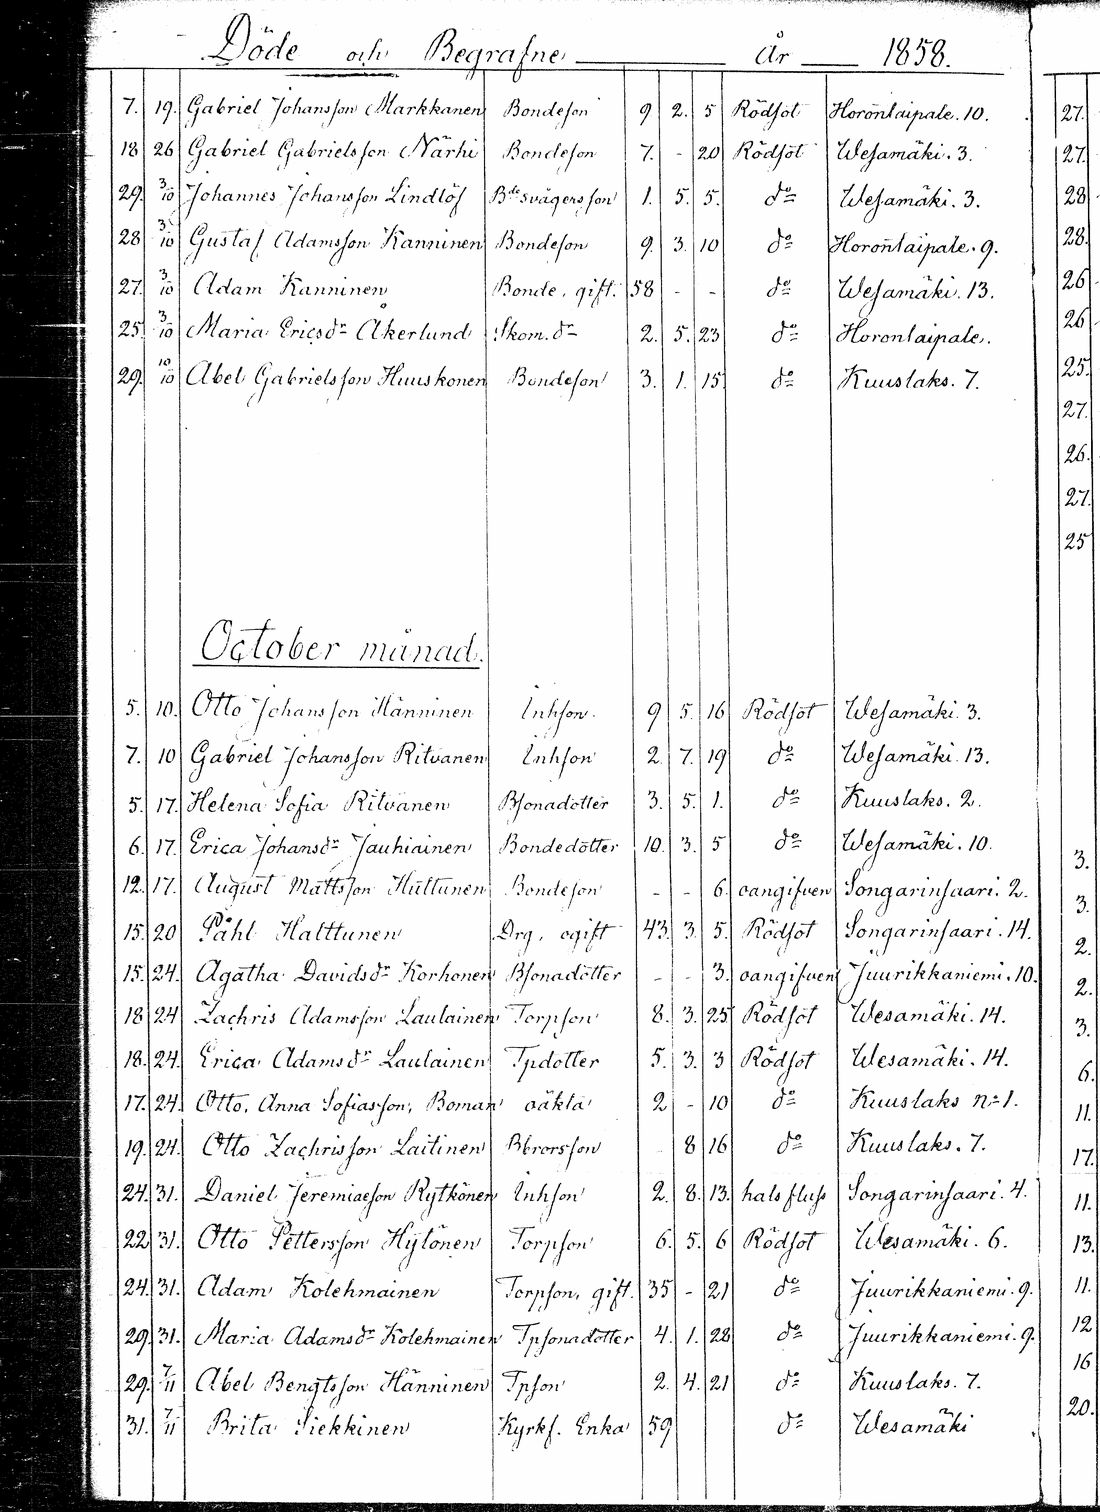 Döde och Begrafne År 1858.
7. 19. Gabriel Johansson Markkanen Bondeson 9 2. 5 Rödsot Horontaipale. 10. 27.
18 26 Gabriel Gabrielsson Närhi Bondeson 7. - 20 Rödsot Wesamäki. 3. 27.
29. 3/10 Johannes Johansson Lindlöf Bde svägersson 1. 5. 5. do Wesamäki. 3. 28
28 3/10 Gustaf Adamsson Kanninen Bondeson 9. 3. 10 do Horontaipale. 9. 28.
27. 3/10 Adam Kanninen Bonde, gift. 58 - - do Wesamäki. 13. 26
25. 3/10 Maria Ericsdr Åkerlund Skom. dr 2. 5. 23 do Horontaipale. 26
29. 10/10 Abel Gabrielsson Huuskonen Bondeson 3. 1. 15 do Kuuslaks. 7. 25.
27.
26.
27.
25
October månad.
5. 10. Otto Johansson Hänninen Inhson. 9 5. 16 Rödsot Wesamäki. 3.
7. 10 Gabriel Johansson Ritvanen Inhson 2. 7. 19 do Wesamäki. 13.
5. 17. Helena Sofia Ritvanen Bsonadotter 3. 5. 1. do Kuuslaks. 2.
6. 17. Erica Johansdr Jauhiainen Bondedotter 10. 3. 5 do Wesamäki. 10. 3.
12. 17. August Mattsson Huttunen Bondeson - - 6. oangifven Songarinsaari. 2. 3.
15. 20 Påhl Halttunen Drg, ogift 43. 3. 5. Rödsot Songarinsaari. 14. 2.
15. 24. Agatha Davidsdr Korhonen Bsonadotter - - 3. oangifven Juurikkaniemi. 10. 2.
18 24 Zachris Adamsson Laulainen Torpson 8. 3. 25 Rödsot Wesamäki. 14. 3.
18. 24. Erica Adamsdr Laulainen Tpdotter 5. 3. 3 Rödsot Wesamäki. 14. 6.
17. 24. Otto, Anna Sofiasson, Boman oäkta 2 - 10 do Kuuslaks No 1. 11.
19. 24. Otto Zachrisson Laitinen Bbrorsson 8 16 do Kuuslaks. 7. 17.
24. 31. Daniel Jeremiaeson Rytkönen Inhson 2. 8. 13. halsfluss Songarinsaari. 4. 11.
22 31. Otto Pettersson Hytönen Torpson 6. 5. 6 Rödsot Wesamäki. 6. 13.
24. 31. Adam Kolehmainen Torpson, gift. 35 - 21 do Juurikkaniemi. 9. 11.
29. 31. Maria Adamsdr Kolehmainen Tpsonadotter 4. 1. 28 do Juurikkaniemi. 9. 12
29. 7/11 Abel Bengtsson Hänninen Tpson 2. 4. 21 do Kuuslaks. 7. 16
31. 7/11 Brita Siekkinen Kyrkf. Enka 59 do Wesamäki 20.